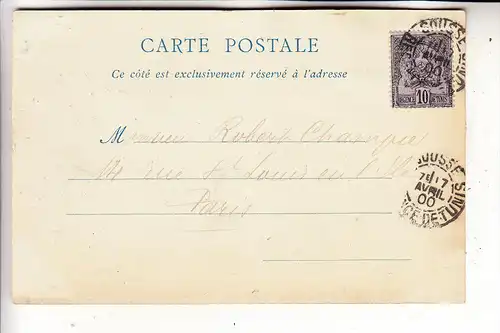 CARTE POSTALE
Ce côté est exclusivement réservé à l'adresse
Monsieur Robert Champie
14 rue St Louis en l'Ile
Paris
10
SOUSSE
7 AVRIL 00
TUNIS